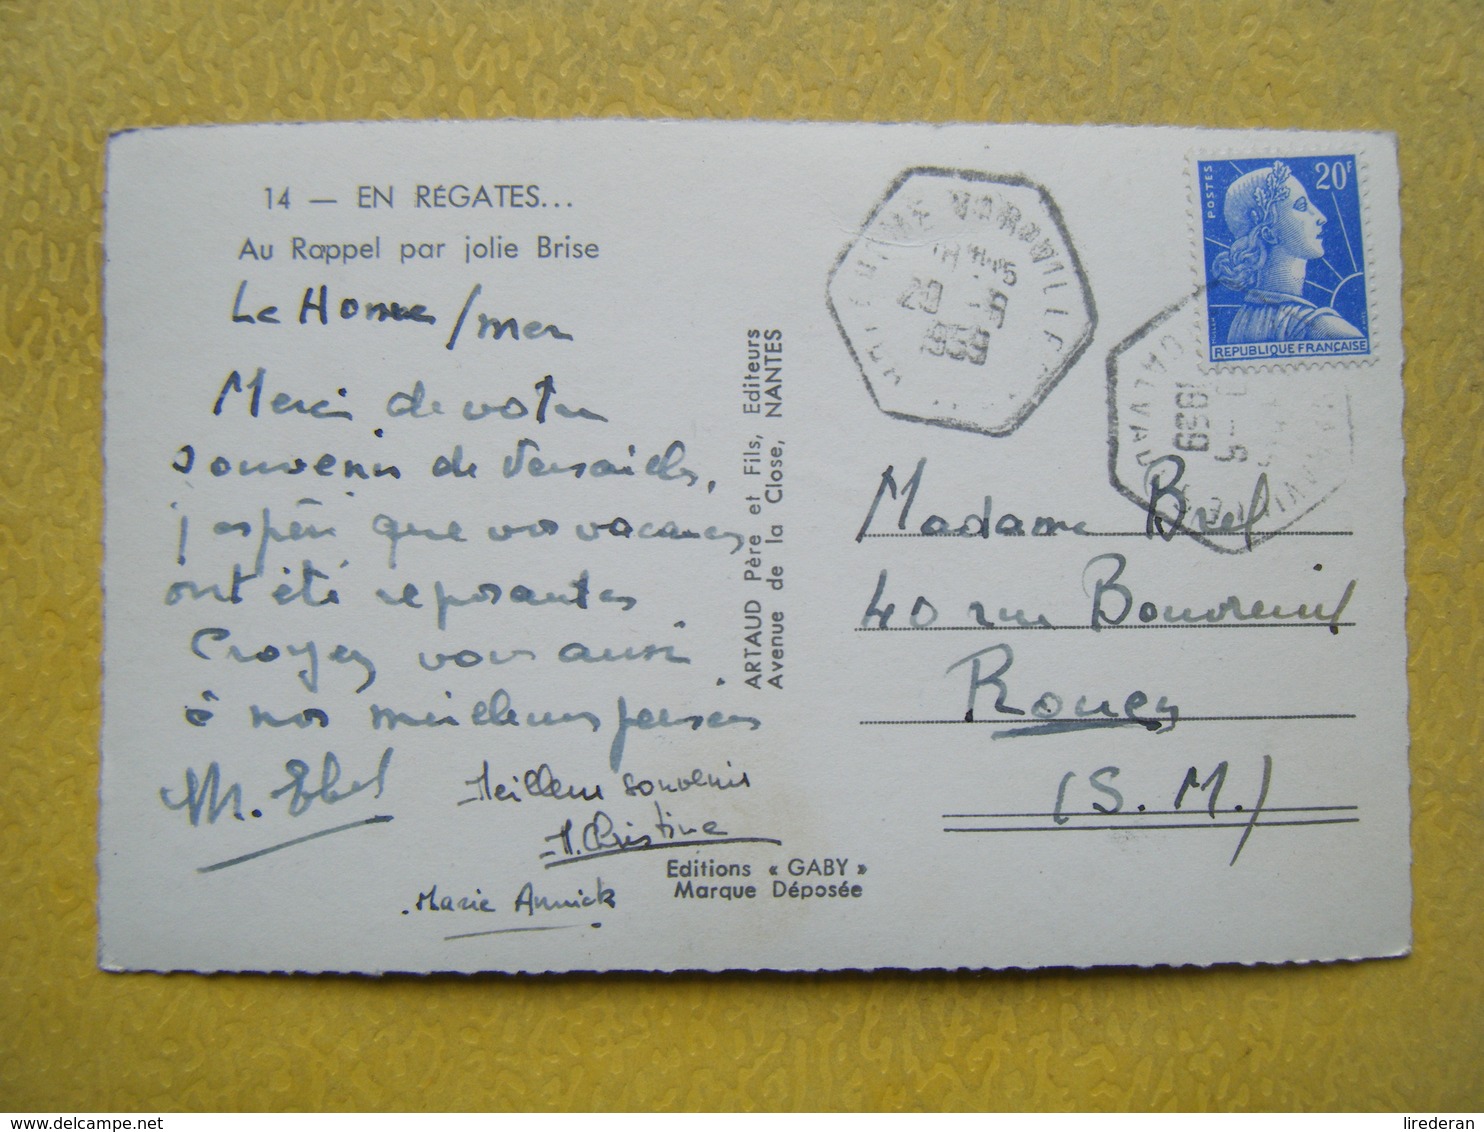 14 — EN RÉGATES...
Au Rappel par jolie Brise
Le Home / mer
Merci de votre
souvenir de Versailles,
j'espère que vos vacances
ont été reposantes
Croyez vous aussi
à nos meilleures pensées
M. Ebel
Meilleur souvenir
M. Christine
Marie Annick
Editions « GABY »
Marque Déposée
ARTAUD Père et Fils, Editeurs
Avenue de la Close, NANTES
VARAVILLE
20 - 5
1959
POSTES
20F
REPUBLIQUE FRANÇAISE
CALVADOS
1959
Madame Brel
40 rue Bouvreuil
Rouen
(S. M.)
lirederan